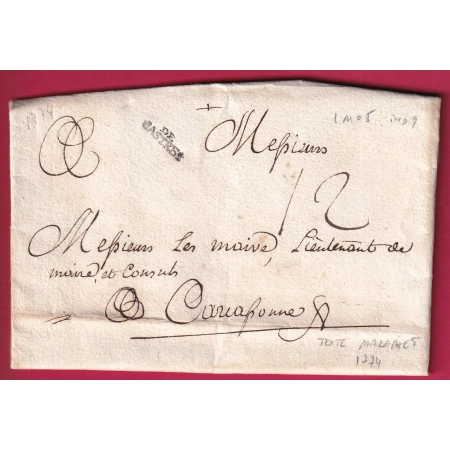 1774
DE
CASTRES
Messieurs
12
Messieurs Les maire, Lieutenant de
maire, et Consuls
A Carcassonne
TEXTE MAZAMET
1774